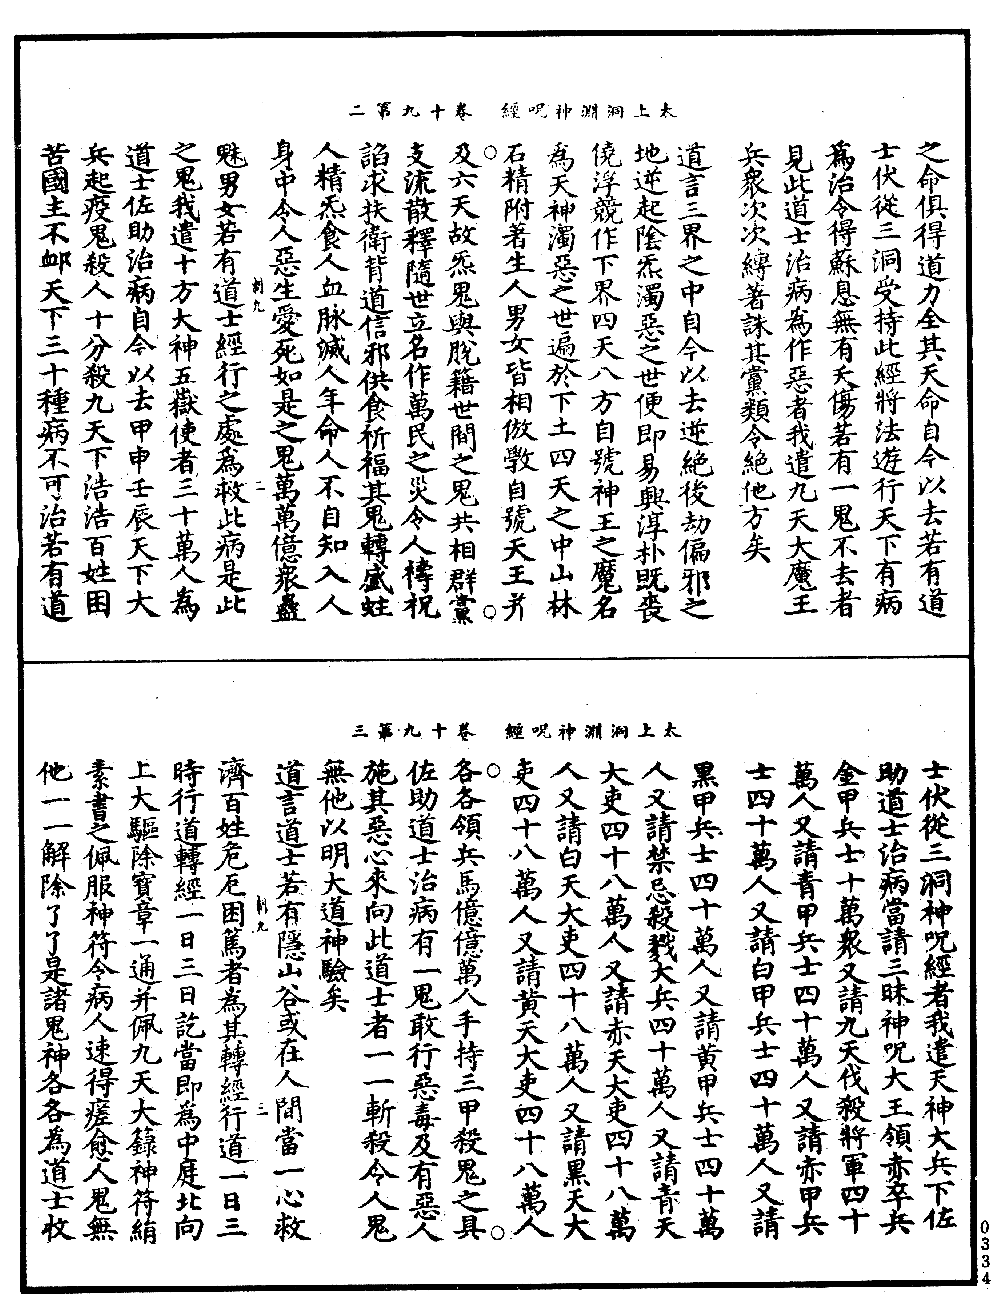 太上洞淵神呪經　卷十九第二
之命俱得道力全其天命自今以去若有道
士伏從三洞受持此經將法遊行天下有病
爲治令得蘇息無有夭傷若有一鬼不去者
見此道士治病為作惡者我遣九天大魔王
兵衆次次縛著誅其黨類令絶他方矣
道言三界之中自今以去逆絶後劫偏邪之
地逆起陰炁濁惡之世便即易興淳朴既喪
僥浮競作下界四天八方自號神王之魔名
為天神濁惡之世遍於下土四天之中山林
石精附著生人男女皆相倣斆自號天王并
及六天故炁鬼與脫籍世間之鬼共相群黨
支流散釋隨世立名作萬民之災令人禱祝
諂求扶衛背道信邪供食祈福其鬼轉盛蛀
人精炁食人血脉滅人年命人不自知入人
身中令人惡生愛死如是之鬼萬萬億衆蠱
魅男女若有道士經行之處為救此病是此
之鬼我遣十方大神五嶽使者三十萬人為
道士佐助治病自今以去甲申壬辰天下大
兵起疫鬼殺人十分殺九天下浩浩百姓困
苦國主不卹天下三十種病不可治若有道
太上洞淵神呪經　卷十九第三
士伏從三洞神呪經者我遣天神大兵下佐
助道士治病當請三昧神呪大王領赤卒兵
金甲兵士十萬衆又請九天伐殺將軍四十
萬人又請青甲兵士四十萬人又請赤甲兵
士四十萬人又請白甲兵士四十萬人又請
黑甲兵士四十萬人又請黄甲兵士四十萬
人又請禁忌殺戮大兵四十萬人又請青天
大吏四十八萬人又請赤天大吏四十八萬
人又請白天大吏四十八萬人又請黑天大
吏四十八萬人又請黄天大吏四十八萬人
各各領兵馬億億萬人手持三甲殺鬼之具
佐助道士治病有一鬼敢行惡毒及有惡人
施其惡心來向此道士者一一斬殺令人鬼
無他以明大道神驗矣
道言道士若有隱山谷或在人間當一心救
濟百姓危厄困篤者為其轉經行道一日三
時行道轉經一日三日訖當即為中庭北向
上大驅除寶章一通并佩九天大籙神符絹
素書之佩服神符令病人速得瘥愈人鬼無
他一一解除了了是諸鬼神各各為道士收
0334